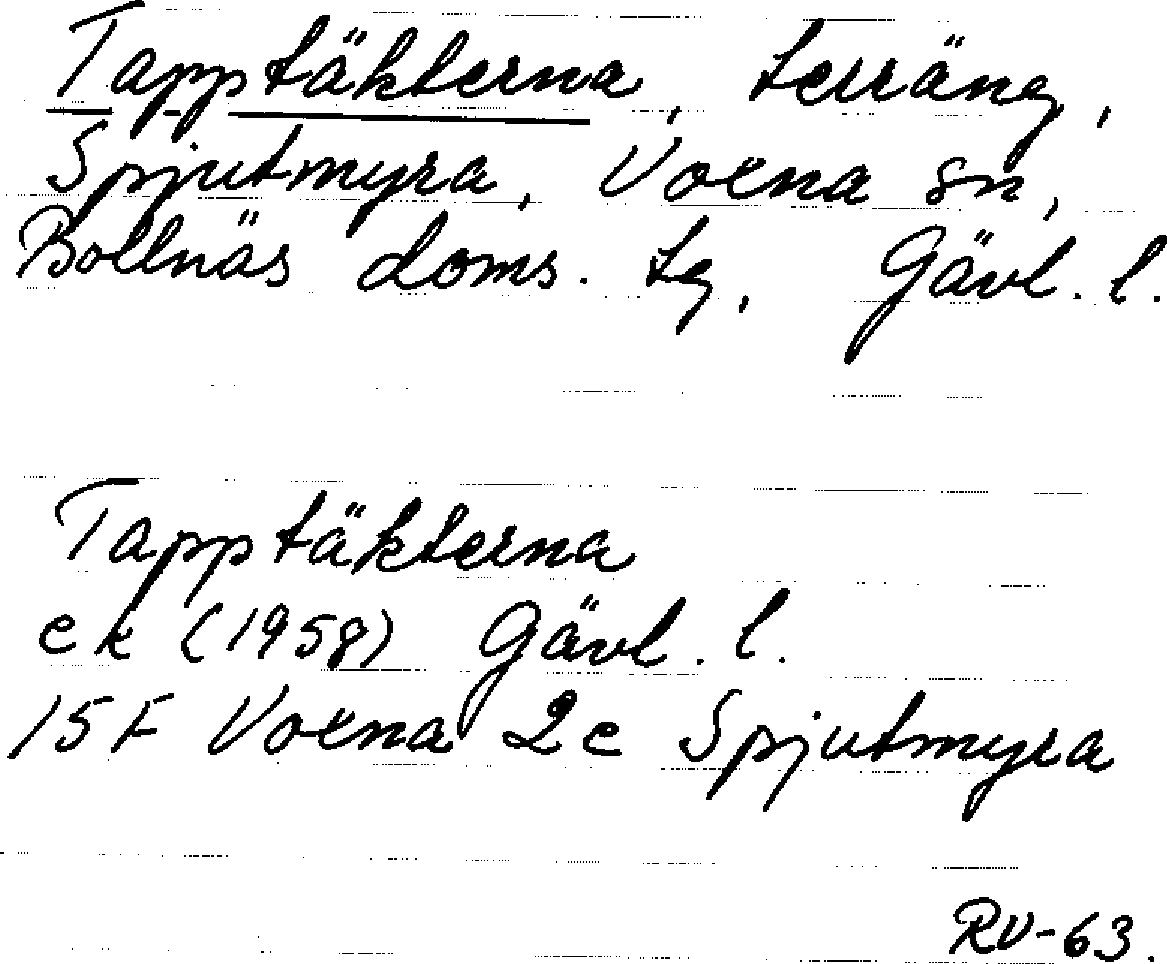 Tapptäkterna, terräng,
Spjutmyra, Voxna sn,
Bollnäs doms. tg, Gävl. l.
Tapptäkterna
ek (1958) Gävl. l.
15F Voxna 2e Spjutmyra
RV-63.